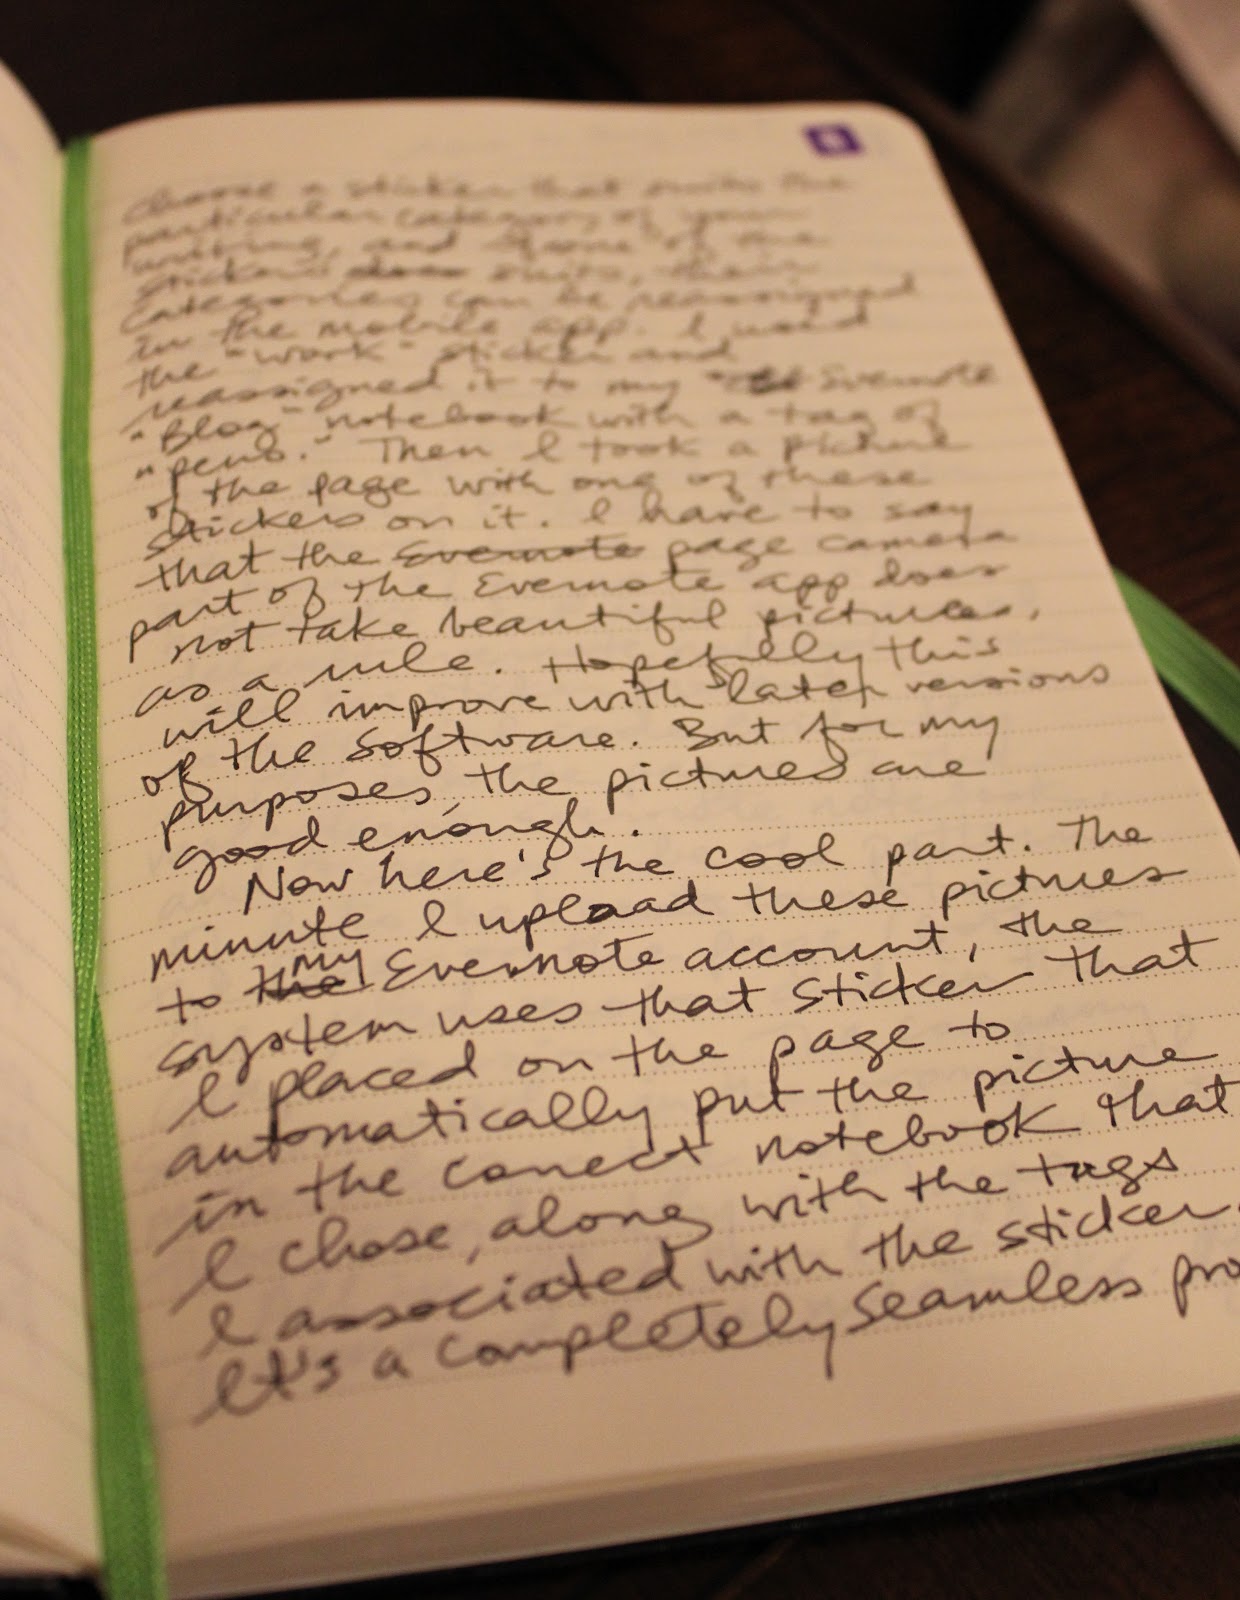 Choose a sticker that suits the
particular category of your
writing, and if none of the
stickers suits, their
categories can be reassigned
in the mobile app. I used
the "work" sticker and
reassigned it to my Evernote
"Blog" notebook with a tag of
"pens." Then I took a picture
of the page with one of these
stickers on it. I have to say
that the Evernote page camera
part of the Evernote app does
not take beautiful pictures,
as a rule. Hopefully this
will improve with later versions
of the software. But for my
purposes, the pictures are
good enough.
Now here's the cool part. The
minute I upload these pictures
to the my Evernote account, the
system uses that sticker that
I placed on the page to
automatically put the picture
in the correct notebook that
I chose, along with the tags
I associated with the sticker.
It's a completely seamless pro